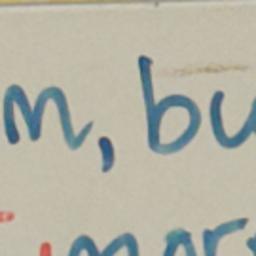 m, bu
mor